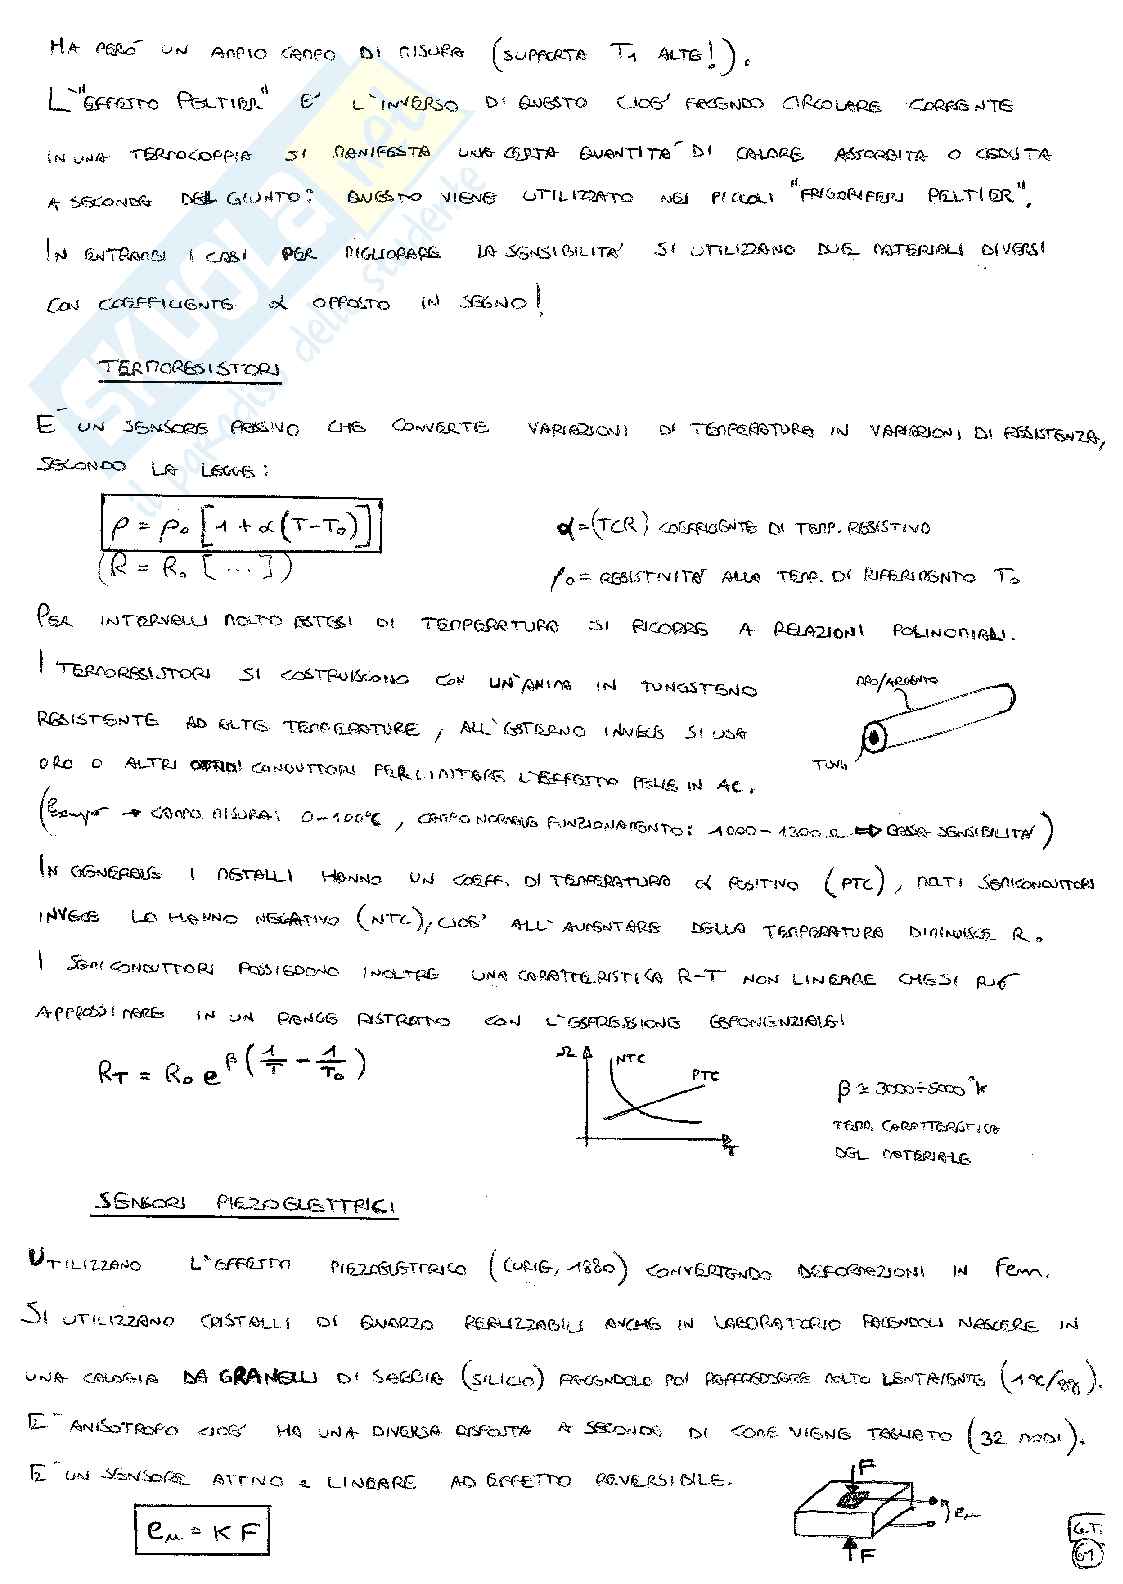 HA PERÒ UN AMPIO CAMPO DI MISURA (SUPPORTA T1 ALTE!).
L'"EFFETTO PELTIER" E' L'INVERSO DI QUESTO CIOE' FACENDO CIRCOLARE CORRENTE
IN UNA TERMOCOPPIA SI MANIFESTA UNA CERTA QUANTITA' DI CALORE ASSORBITA O CEDUTA
A SECONDA DEL GIUNTO: QUESTO VIENE UTILIZZATO NEI PICCOLI "FRIGORIFERI PELTIER".
IN ENTRAMBI I CASI PER MIGLIORARE LA SENSIBILITA' SI UTILIZZANO DUE MATERIALI DIVERSI
CON COEFFICIENTE α OPPOSTO IN SEGNO!
SKUOLA.net
il paradiso dello studente
TERMORESISTORI
E' UN SENSORE PASSIVO CHE CONVERTE VARIAZIONI DI TEMPERATURA IN VARIAZIONI DI RESISTENZA,
SECONDO LA LEGGE:
ρ = ρ₀ [1 + α(T-T₀)]
(R = R₀ [...])
α = (TCR) COEFFICIENTE DI TEMP. RESISTIVO
ρ₀ = RESISTIVITA' ALLA TEMP. DI RIFERIMENTO T₀
PER INTERVALLI MOLTO ESTESI DI TEMPERATURA SI RICORRE A RELAZIONI POLINOMIALI.
I TERMORESISTORI SI COSTRUISCONO CON UN'ANIMA IN TUNGSTENO
RESISTENTE AD ALTE TEMPERATURE, ALL'ESTERNO INVECE SI USA
ORO O ALTRI CONDUTTORI PER LIMITARE L'EFFETTO PELLE IN AC.
ORO/ARGENTO
TUNG
(Esempio → CAMPO MISURA: 0-100°C, CAMPO NORMALE FUNZIONAMENTO: 1000-1200 Ω ⇒ BASSA SENSIBILITA')
IN GENERALE I METALLI HANNO UN COEFF. DI TEMPERATURA α POSITIVO (PTC), MOLTI SEMICONDUTTORI
INVECE LO HANNO NEGATIVO (NTC), CIOE' ALL'AUMENTARE DELLA TEMPERATURA DIMINUISCE R.
I SEMICONDUTTORI POSSIEDONO INOLTRE UNA CARATTERISTICA R-T NON LINEARE CHE SI PUO'
APPROSSIMARE IN UN RANGE RISTRETTO CON L'ESPRESSIONE ESPONENZIALE:
R_T = R₀ e^β(1/T - 1/T₀)
Ω NTC PTC T
β ≃ 3000÷5000 °K
TEMP. CARATTERISTICA
DEL MATERIALE
SENSORI PIEZOELETTRICI
UTILIZZANO L'EFFETTO PIEZOELETTRICO (CURIE, 1880) CONVERTENDO DEFORMAZIONI IN Fem.
SI UTILIZZANO CRISTALLI DI QUARZO REALIZZABILI ANCHE IN LABORATORIO FACENDOLI NASCERE IN
UNA CALDAIA DA GRANELLI DI SABBIA (SILICIO) FACENDOLO POI RAFFREDDARE MOLTO LENTAMENTE (1°C/gg).
E' ANISOTROPO CIOE' HA UNA DIVERSA RISPOSTA A SECONDA DI COME VIENE TAGLIATO (32 MODI).
E' UN SENSORE ATTIVO E LINEARE AD EFFETTO REVERSIBILE.
e_u = K F
F
e_u
F
G.T.
61